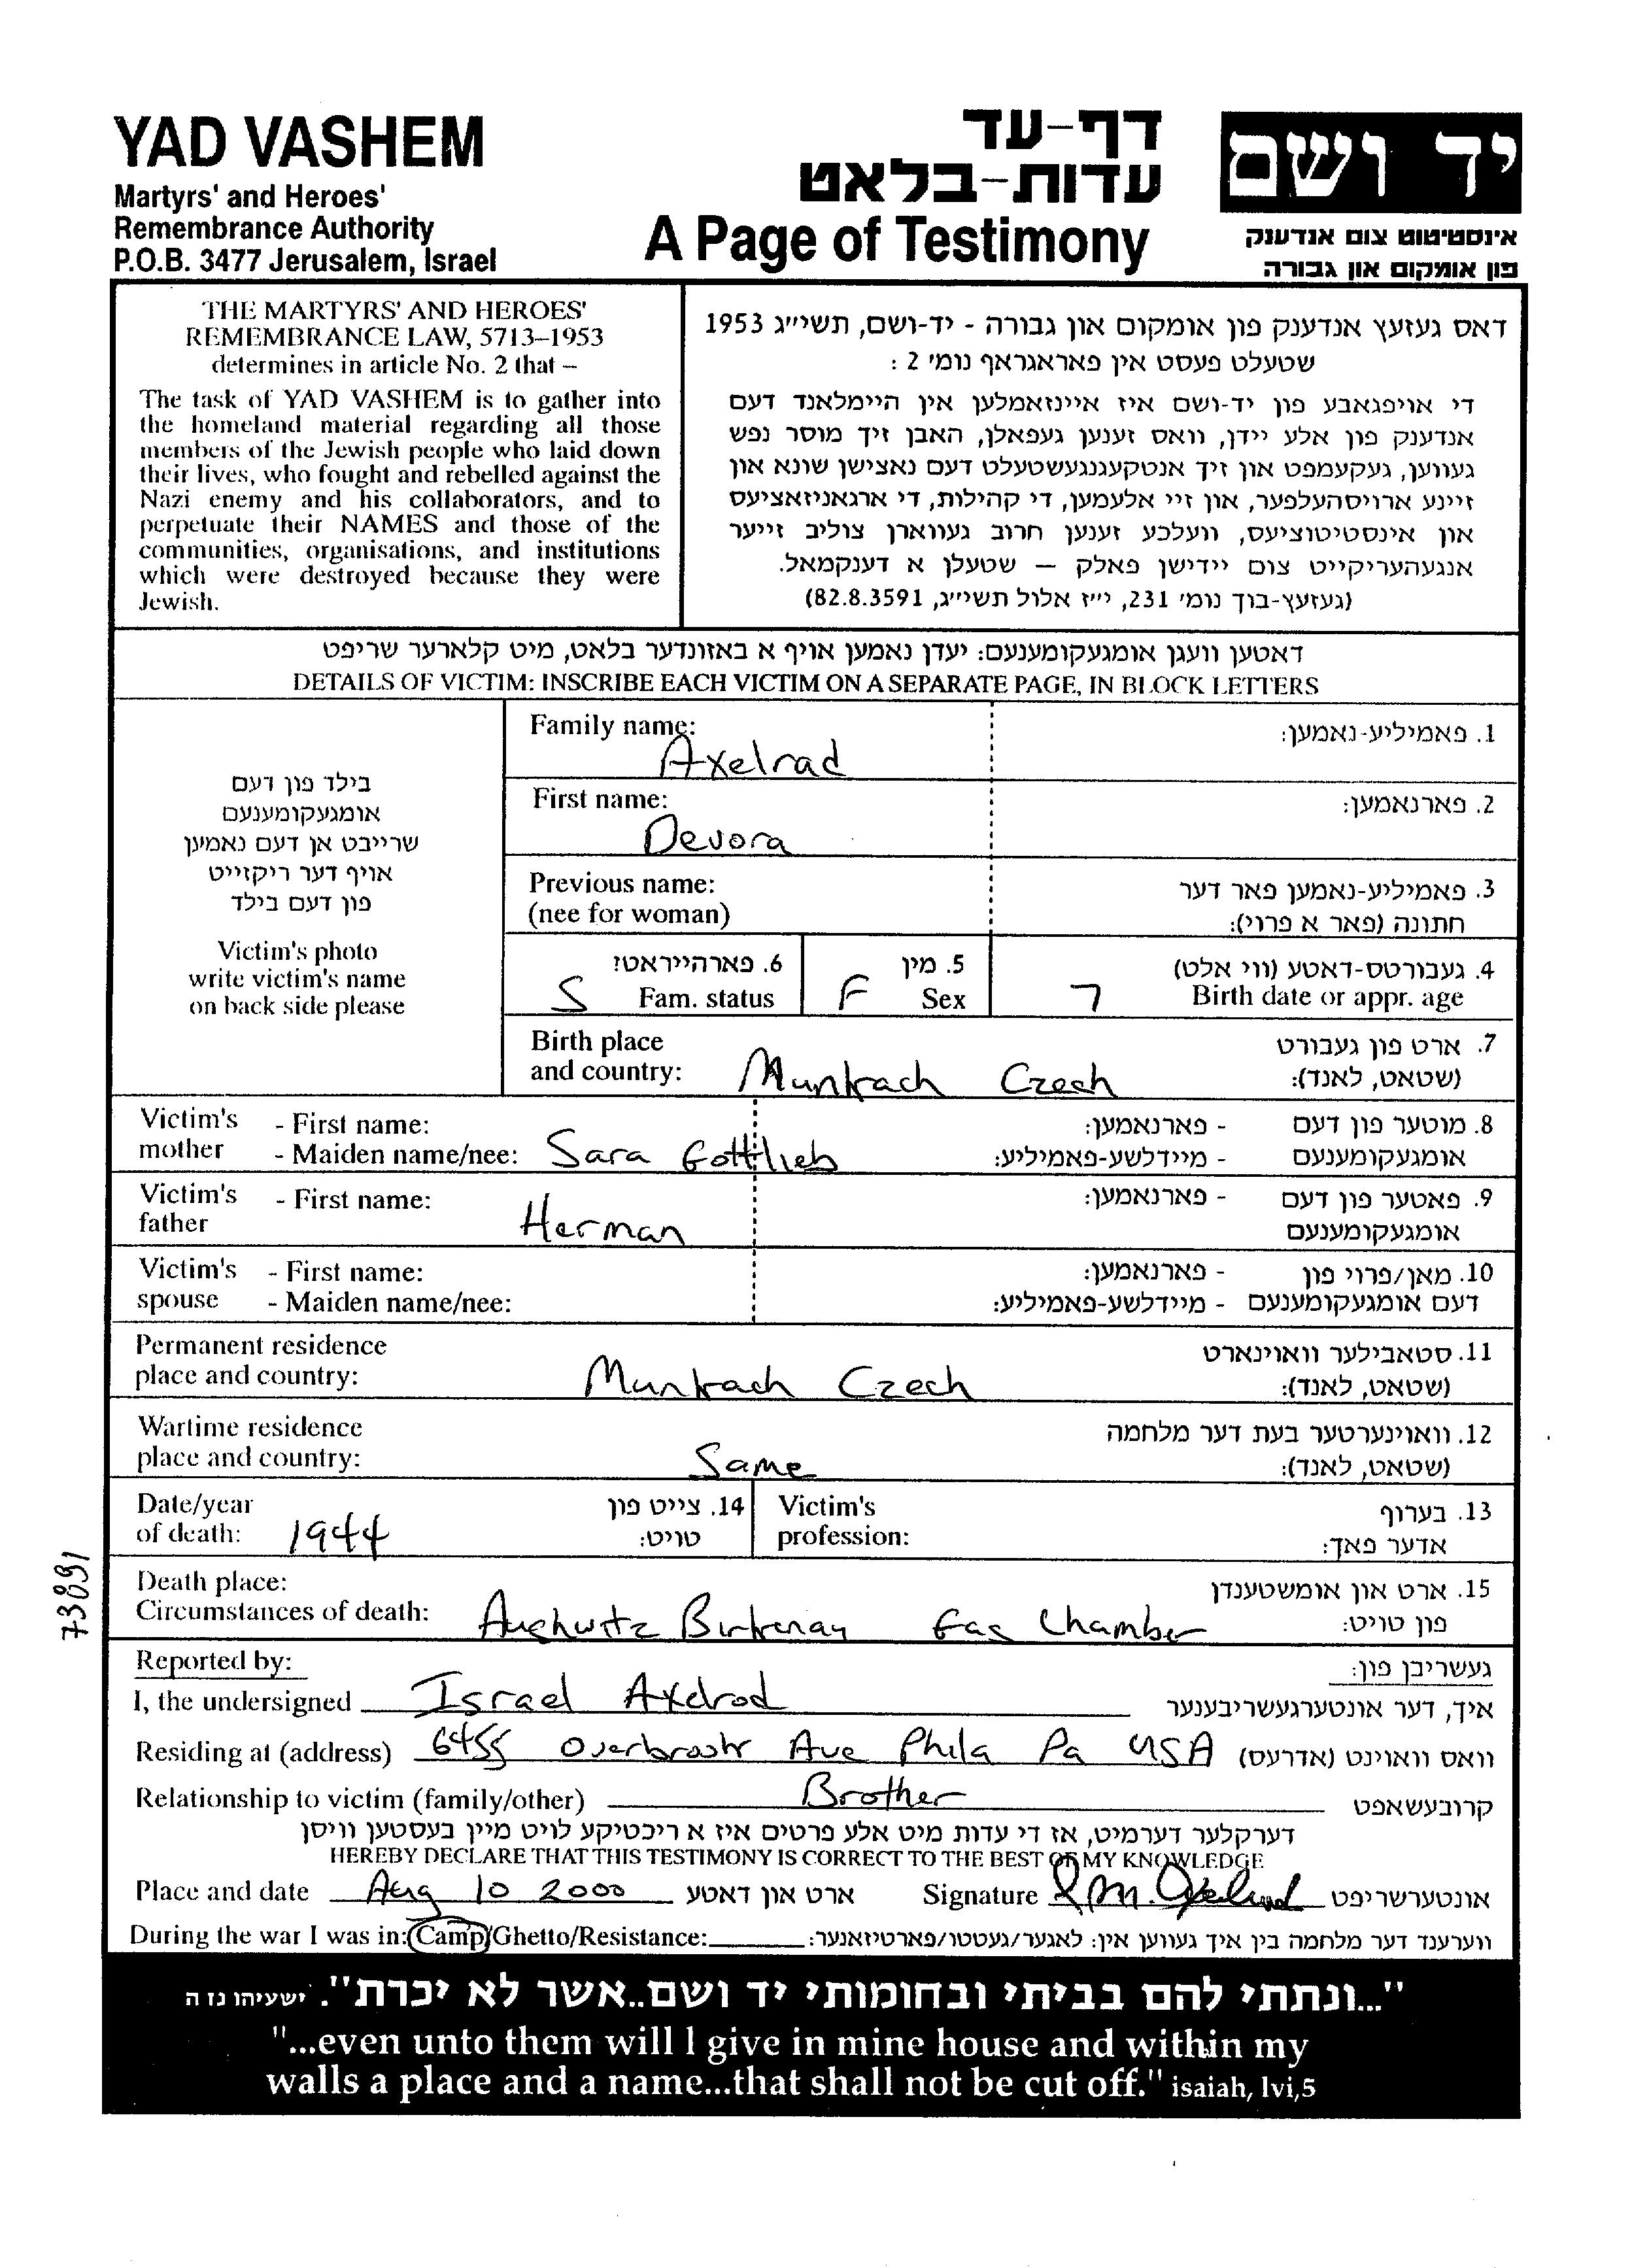 YAD VASHEM
Martyrs' and Heroes'
Remembrance Authority
P.O.B. 3477 Jerusalem, Israel
דף-עד
עדות-בלאט
A Page of Testimony
יד ושם
אינסטיטוט צום אנדענק
פון אומקום און גבורה
THE MARTYRS' AND HEROES'
REMEMBRANCE LAW, 5713–1953
determines in article No. 2 that –
The task of YAD VASHEM is to gather into
the homeland material regarding all those
members of the Jewish people who laid down
their lives, who fought and rebelled against the
Nazi enemy and his collaborators, and to
perpetuate their NAMES and those of the
communities, organisations, and institutions
which were destroyed because they were
Jewish.
דאס געזעץ אנדענק פון אומקום און גבורה - יד-ושם, תשי״ג 1953
שטעלט פעסט אין פאראגראף נומ׳ 2 :
די אויפגאבע פון יד-ושם איז איינזאמלען אין היימלאנד דעם
אנדענק פון אלע יידן, וואס זענען געפאלן, האבן זיך מוסר נפש
געווען, געקעמפט און זיך אנטקעגנגעשטעלט דעם נאצישן שונא און
זיינע ארויסהעלפער, און זיי אלעמען, די קהילות, די ארגאניזאציעס
און אינסטיטוציעס, וועלכע זענען חרוב געווארן צוליב זייער
אנגעהעריקייט צום יידישן פאלק – שטעלן א דענקמאל.
(געזעץ-בוך נומ׳ 132, י״ז אלול תשי״ג, 82.8.3591)
דאטען וועגן אומגעקומענעם: יעדן נאמען אויף א באזונדער בלאט, מיט קלארער שריפט
DETAILS OF VICTIM: INSCRIBE EACH VICTIM ON A SEPARATE PAGE, IN BLOCK LETTERS
בילד פון דעם
אומגעקומענעם
שרייבט אן דעם נאמען
אויף דער ריקזייט
פון דעם בילד
Victim's photo
write victim's name
on back side please
Family name: Axelrad 1. פאמיליע-נאמען:
First name: Devora 2. פארנאמען:
Previous name: 3. פאמיליע-נאמען פאר דער
(nee for woman) חתונה (פאר א פרוי):
6. פארהייראט? 5. מין 4. געבורטס-דאטע (ווי אלט)
S Fam. status F Sex 7 Birth date or appr. age
Birth place 7. ארט פון געבורט
and country: Munkach Czech (שטאט, לאנד):
Victim's - First name: - פארנאמען: 8. מוטער פון דעם
mother - Maiden name/nee: Sara Gottlieb - מיידלשע-פאמיליע: אומגעקומענעם
Victim's - First name: - פארנאמען: 9. פאטער פון דעם
father Herman אומגעקומענעם
Victim's - First name: - פארנאמען: 10. מאן/פרוי פון
spouse - Maiden name/nee: - מיידלשע-פאמיליע: דעם אומגעקומענעם
Permanent residence 11. סטאבילער וואוינארט
place and country: Munkach Czech (שטאט, לאנד):
Wartime residence 12. וואוינערטער בעת דער מלחמה
place and country: Same (שטאט, לאנד):
Date/year 14. צייט פון Victim's 13. בערוף
of death: 1944 טויט: profession: אדער פאך:
Death place: 15. ארט און אומשטענדן
Circumstances of death: Aushwitz Birkenay Gas Chamber פון טויט:
73891
Reported by: געשריבן פון:
I, the undersigned Israel Axelrod איך, דער אונטערגעשריבענער
Residing at (address) 6455 Overbrook Ave Phila Pa USA וואס וואוינט (אדרעס)
Relationship to victim (family/other) Brother קרובעשאפט
דערקלער דערמיט, אז די עדות מיט אלע פרטים איז א ריכטיקע לויט מיין בעסטען וויסן
HEREBY DECLARE THAT THIS TESTIMONY IS CORRECT TO THE BEST OF MY KNOWLEDGE
Place and date Aug 10 2000 ארט און דאטע Signature אונטערשריפט
During the war I was in: Camp/Ghetto/Resistance: ווערענד דער מלחמה בין איך געווען אין: לאגער/געטטו/פארטיזאנער:
"...ונתתי להם בביתי ובחומותי יד ושם..אשר לא יכרת". ישעיהו נז ה
"...even unto them will I give in mine house and within my
walls a place and a name...that shall not be cut off." isaiah, lvi,5